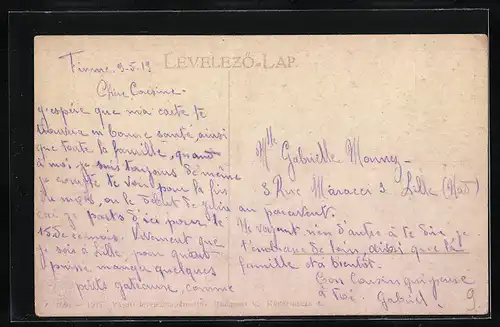 LEVELEZŐ-LAP
Fiume 9-5-19
Chère Cousine.
j'espère que ma carte te
trouvera en bonne santé ainsi
que toute la famille, quand
à moi je suis toujours de même
je compte te voir pour la fin
du mois, ou le début de
car je parts d'ici pour le
15 de ce mois. Vivement que
je sois à Lille, pour qu'on
puisse manger quelques
petits gateaux, comme
Mlle Gabrielle Monney
3 Rue Maracci 3 Lille (Nord)
au paravent.
Ne voyant rien d'autre à te dire je
t'embrasse de loin, ainsi que la
famille et à bientôt.
Ton Cousin qui pense
à toi. Gabriel.
9